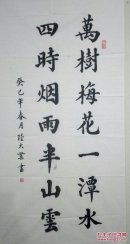 萬樹梅花一潭水
四時烟雨半山雲
癸巳年春月陸大業書